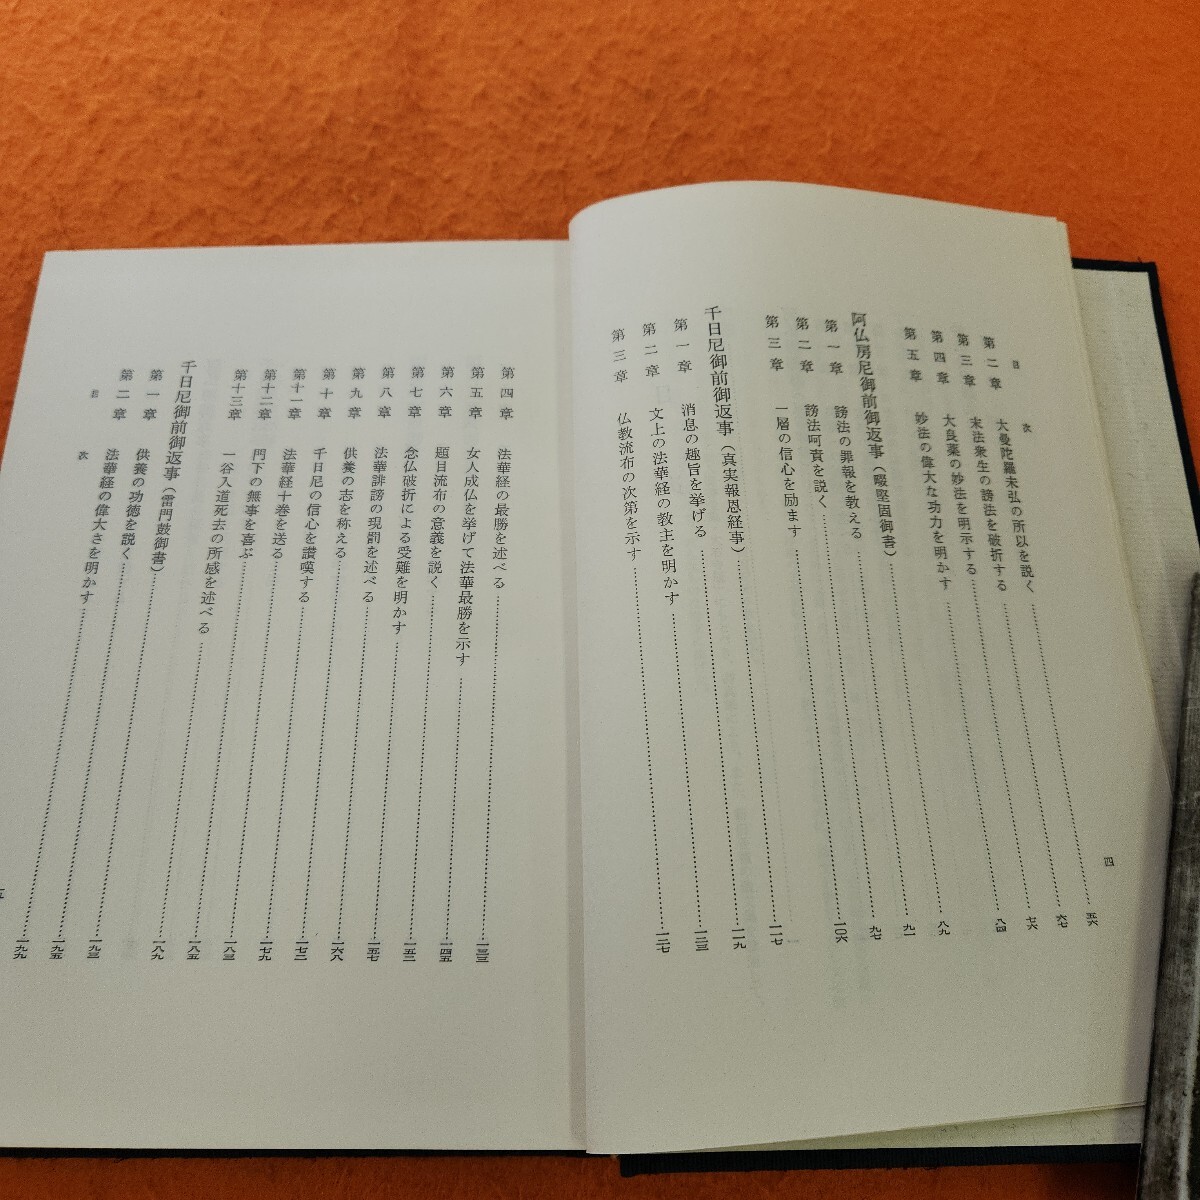 目次
四
第二章 大曼陀羅未弘の所以を説く……五六
第三章 末法衆生の謗法を破折する……六七
第四章 大良薬の妙法を明示する……七六
第五章 妙法の偉大な功力を明かす……八四
阿仏房尼御前御返事（畷堅固御書）……八九
第一章 謗法の罪報を教える……九一
第二章 謗法呵責を説く……九七
第三章 一層の信心を励ます……一〇六
千日尼御前御返事（真実報恩経事）……一一七
第一章 消息の趣旨を挙げる……一一九
第二章 文上の法華経の教主を明かす……一二三
第三章 仏教流布の次第を示す……一二七
第四章 法華経の最勝を述べる……一三三
第五章 女人成仏を挙げて法華最勝を示す……一四五
第六章 題目流布の意義を説く……一五三
第七章 念仏破折による受難を明かす……一五七
第八章 法華誹謗の現罰を述べる……一六八
第九章 供養の志を称える……一七三
第十章 千日尼の信心を讃嘆する……一七九
第十一章 法華経十巻を送る……一八三
第十二章 門下の無事を喜ぶ……一八五
第十三章 一谷入道死去の所感を述べる……一八九
千日尼御前御返事（雷門鼓御書）……一九三
第一章 供養の功徳を説く……一九五
第二章 法華経の偉大さを明かす……一九九
目次
五